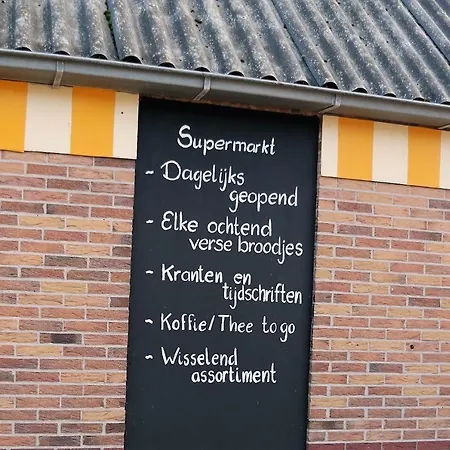 Supermarkt
- Dagelijks
geopend
- Elke ochtend
verse broodjes
- Kranten en
tijdschriften
- Koffie/Thee to go
- Wisselend
assortiment